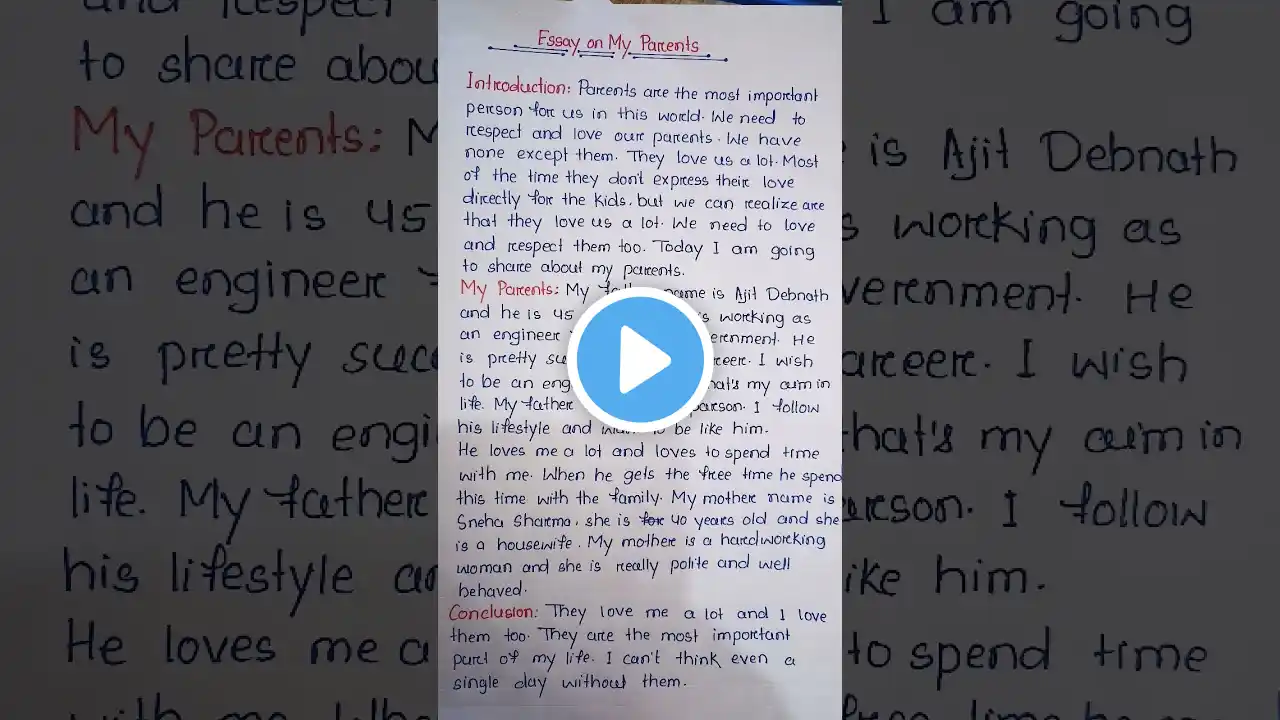 Essay on My Parents
Introduction: Parents are the most important
person for us in this world. We need to
respect and love our parents. We have
none except them. They love us a lot. Most
of the time they don't express their love
directly for the kids. but we can realize are
that they love us a lot. We need to love
and respect them too. Today I am going
to share about my parents.
My Parents: My father name is Ajit Debnath
and he is 45 working as
an engineer
is pretty I wish
to be an that's my aim in
life. My father person. I follow
his lifestyle and be like him.
He loves me a lot and loves to spend time
with me. When he gets the free time he spend
this time with the family. My mother name is
Sneha Sharma, she is for 40 years old and she
is a housewife. My mother is a hardworking
woman and she is really polite and well
behaved.
Conclusion: They love me a lot and I love
them too. They are the most important
part of my life. I can't think even a
single day without them.
and respect
to share
My Parents:
and he is 45
an engineer
is pretty
to be an
life. My father
his lifestyle
He loves me a
I am going
is Ajit Debnath
working as
He
I wish
that's my aim in
I follow
him.
to spend time